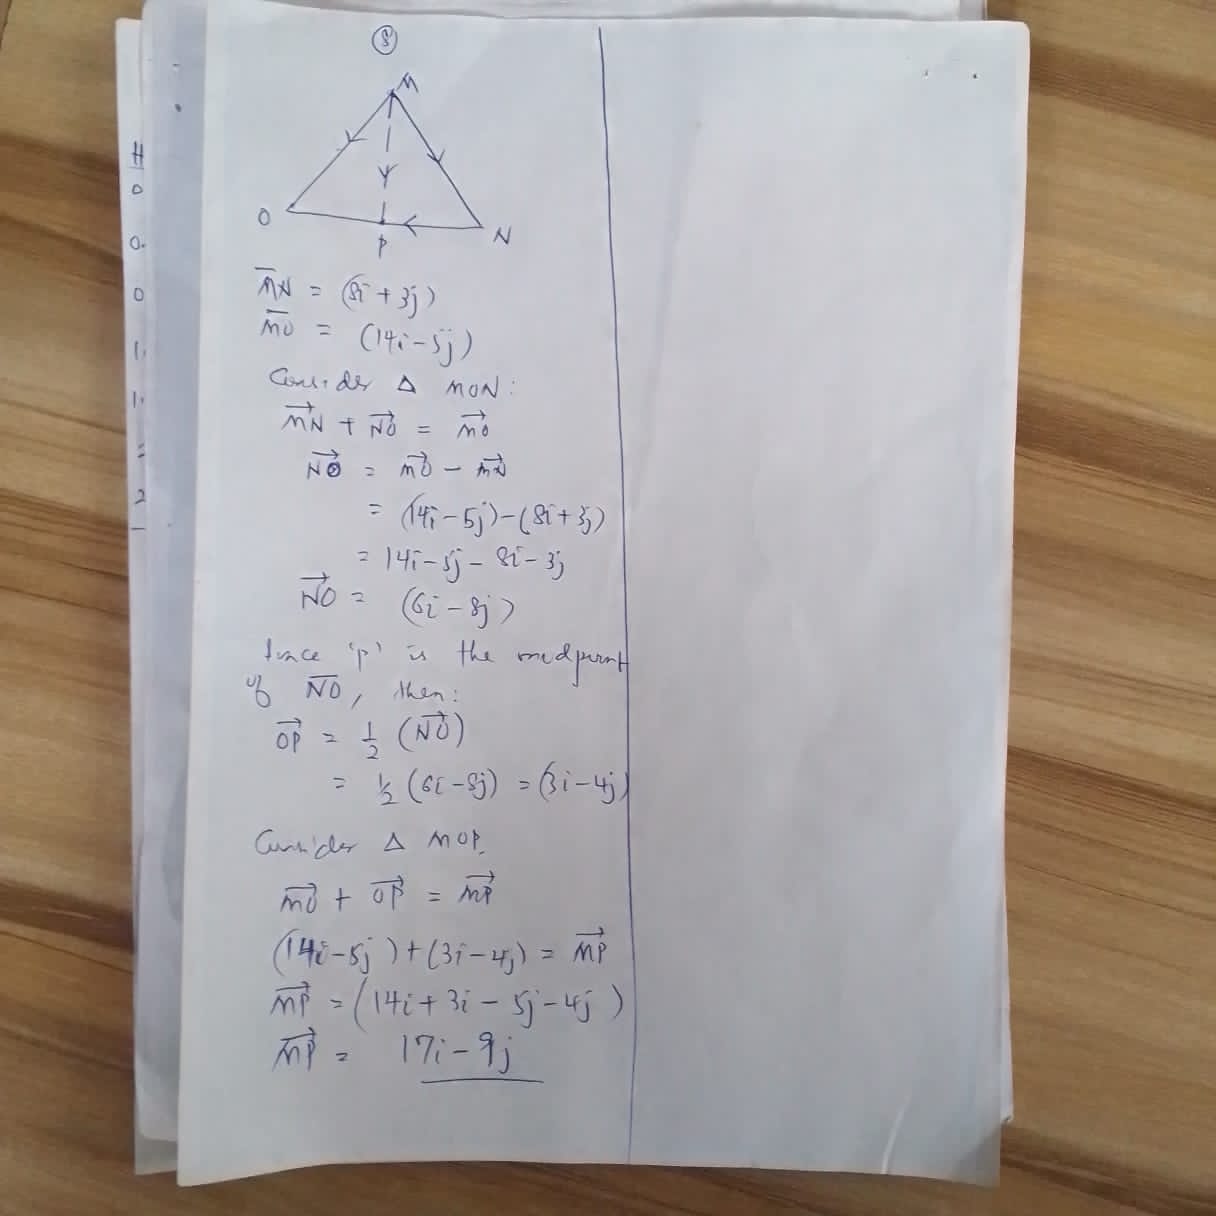 8
M
O
P
N
MN = (8i + 3j)
MO = (14i - 5j)
Consider Δ MON:
MN + NO = MO
NO = MO - MN
= (14i - 5j) - (8i + 3j)
= 14i - 5j - 8i - 3j
NO = (6i - 8j)
Since 'p' is the midpoint
of NO, then:
OP = 1/2 (NO)
= 1/2 (6i - 8j) = (3i - 4j)
Consider Δ MOP.
MO + OP = MP
(14i - 5j) + (3i - 4j) = MP
MP = (14i + 3i - 5j - 4j)
MP = 17i - 9j
H
0
0.
0
1.
1.
=
2